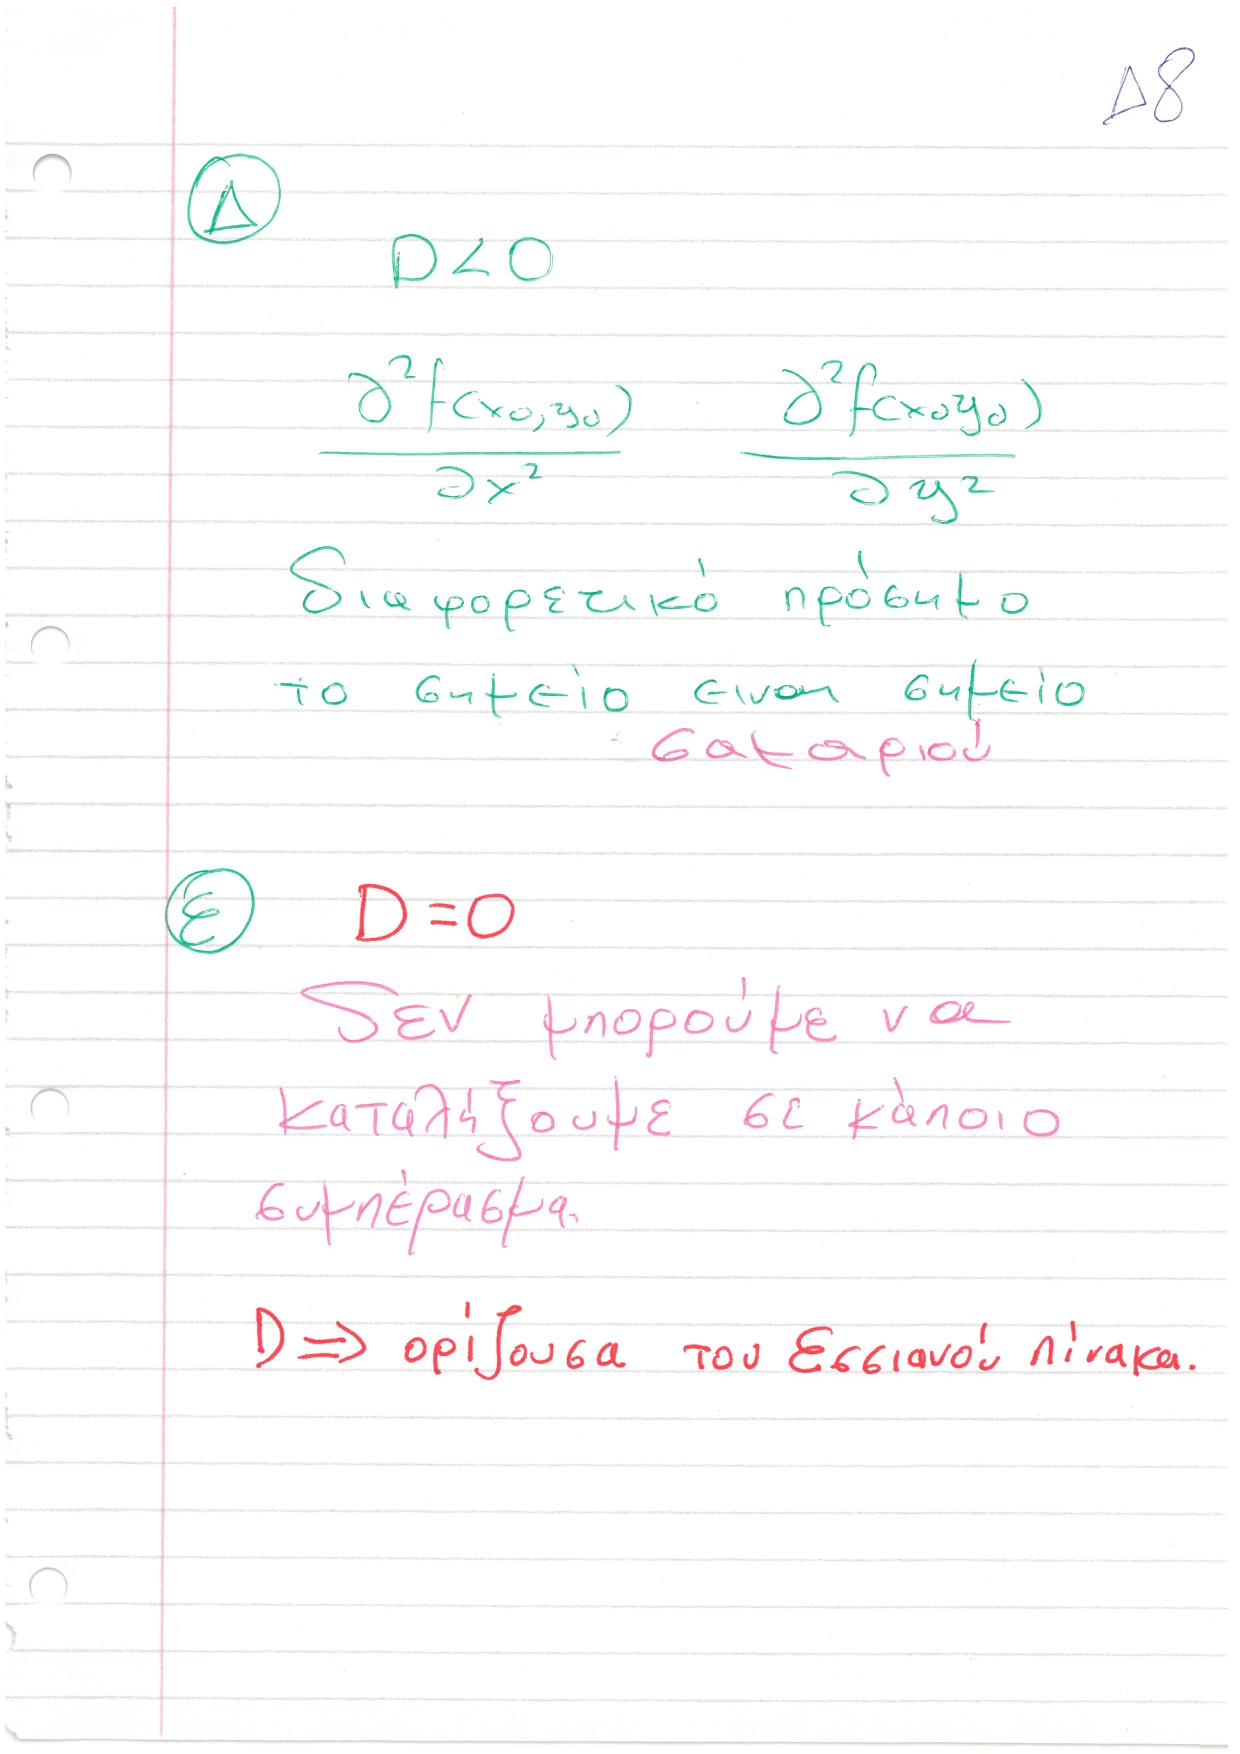 Δ8
Δ
D<0
∂²f(x0,y0) ∂²f(x0y0)
∂x² ∂y²
διαφορετικό πρόσημο
το σημείο ειναι σημείο
σαμαριού
ε D=0
δεν μπορούμε να
καταλήξουμε σε κάποιο
συμπέρασμα.
D⇒ ορίζουσα του Εσσιανού πίνακα.